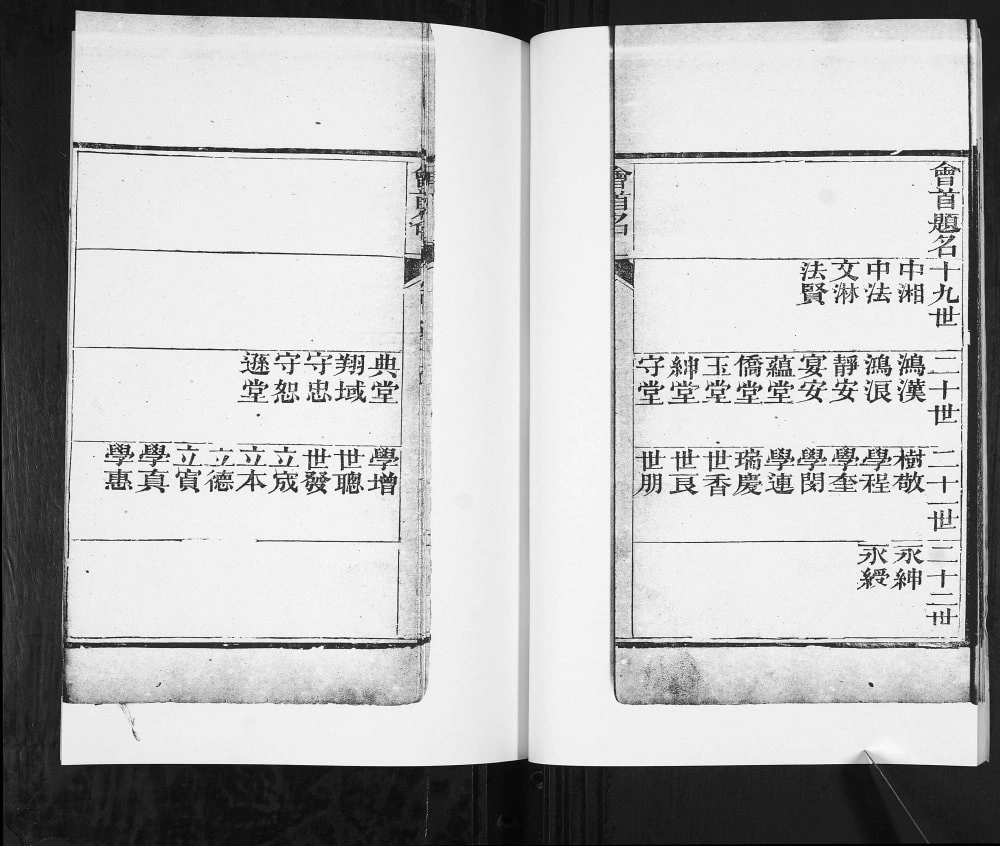 會首題名
十九世
中湘
中法
文淋
法賢
二十世
鴻漢
鴻浪
靜安
宴安
蘊堂
僑堂
玉堂
紳堂
守堂
二十一世
樹敬
學程
學奎
學閔
學連
瑞慶
世香
世良
世朋
二十二世
永紳
永綬
會首名
會首名
典堂
翔域
守忠
守恕
遜堂
學增
世聰
世發
立成
立本
立德
立寅
學真
學惠